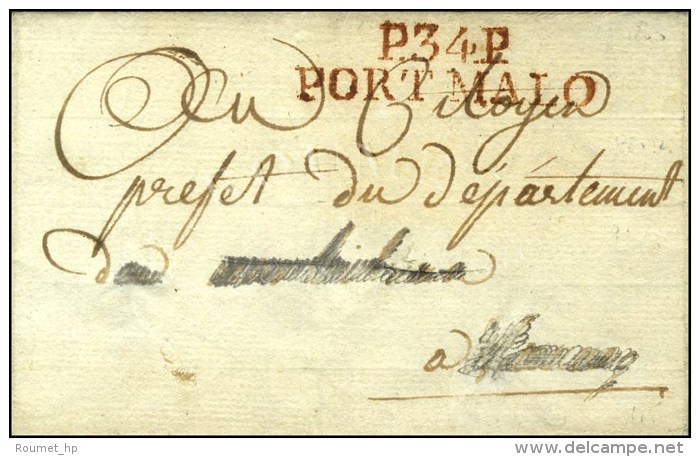 P.34.P
PORT MALO
Au Citoyen
prefet du département
a
Roumet_hp
delcampe.net